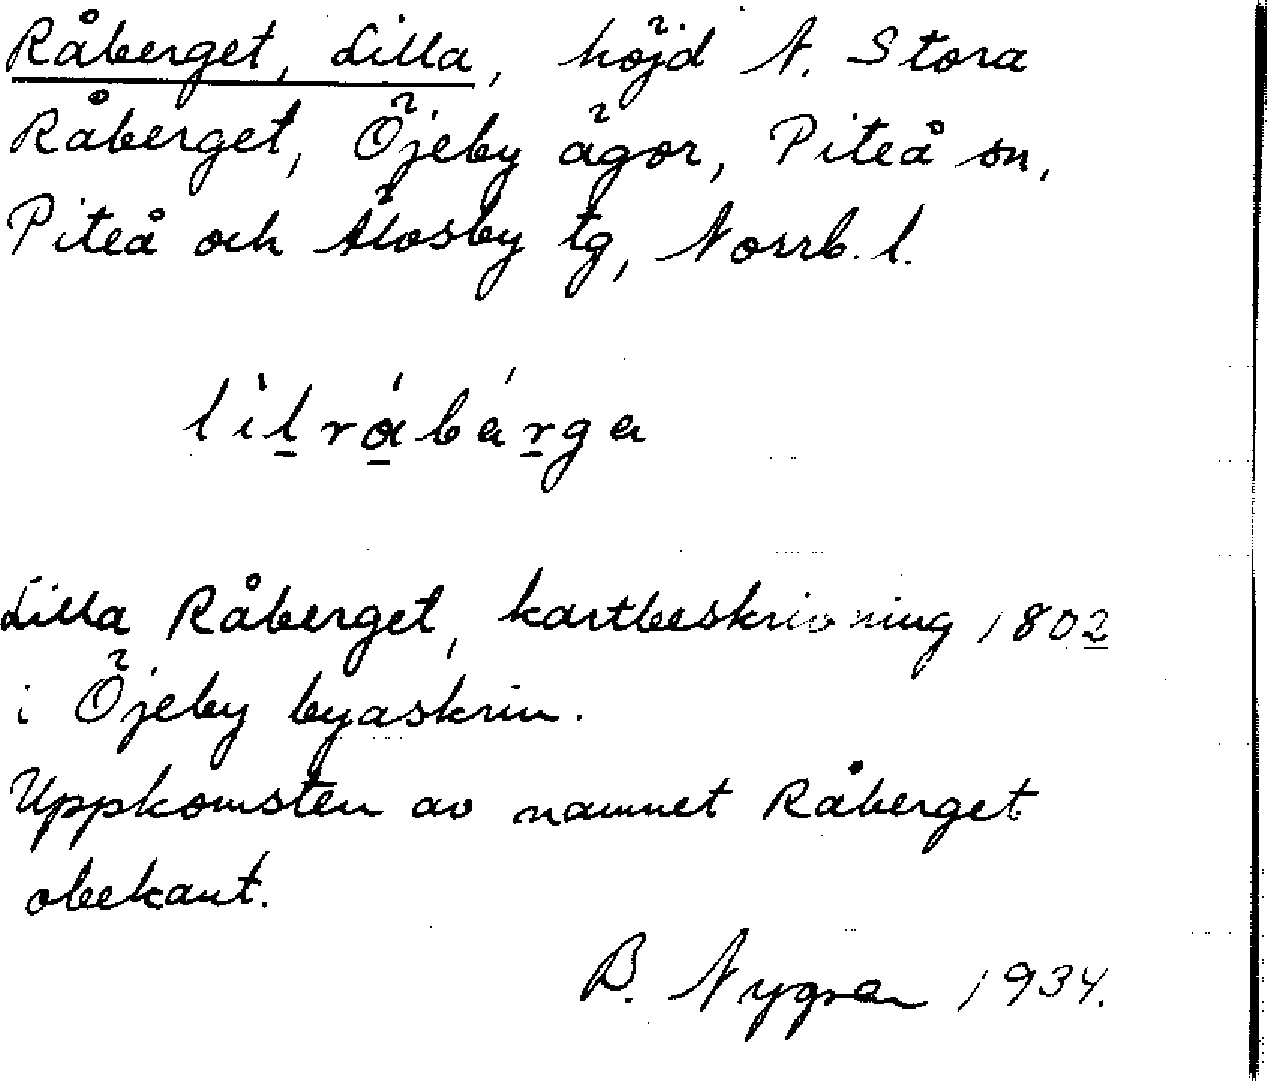 Råberget, Lilla, höjd N. Stora
Råberget, Öjeby ägor, Piteå sn,
Piteå och Älvsby tg, Norrb. l.
lìl̠rå̠bárg̠a
Lilla Råberget, kartbeskrivning 1802
i Öjeby byaskrin.
Uppkomsten av namnet Råberget
obekant.
B. Nygren 1934.